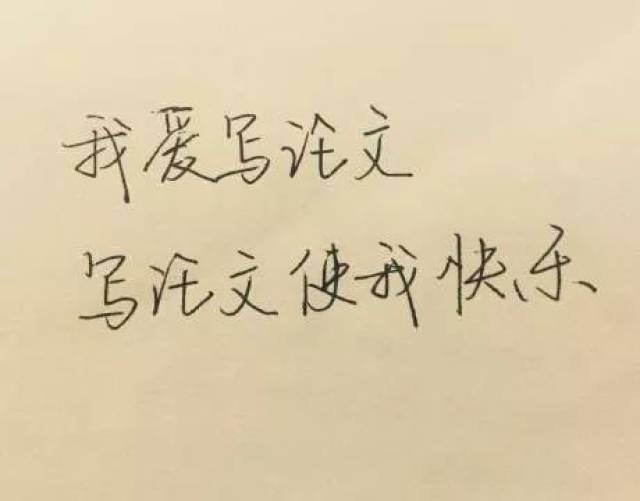 我爱写论文
写论文使我快乐